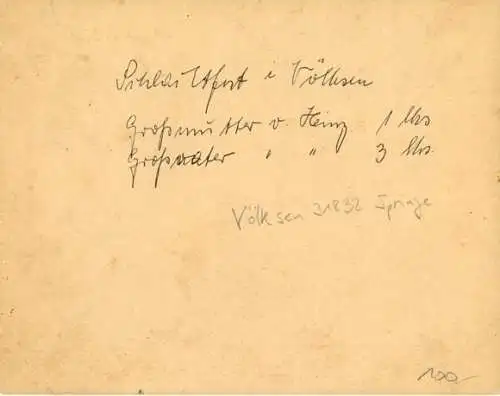 Schlachtfest i Völksen
Großmutter v. Heinz 1 lks
Großvater " " 3 lks.
Völksen 31832 Springe
100,-